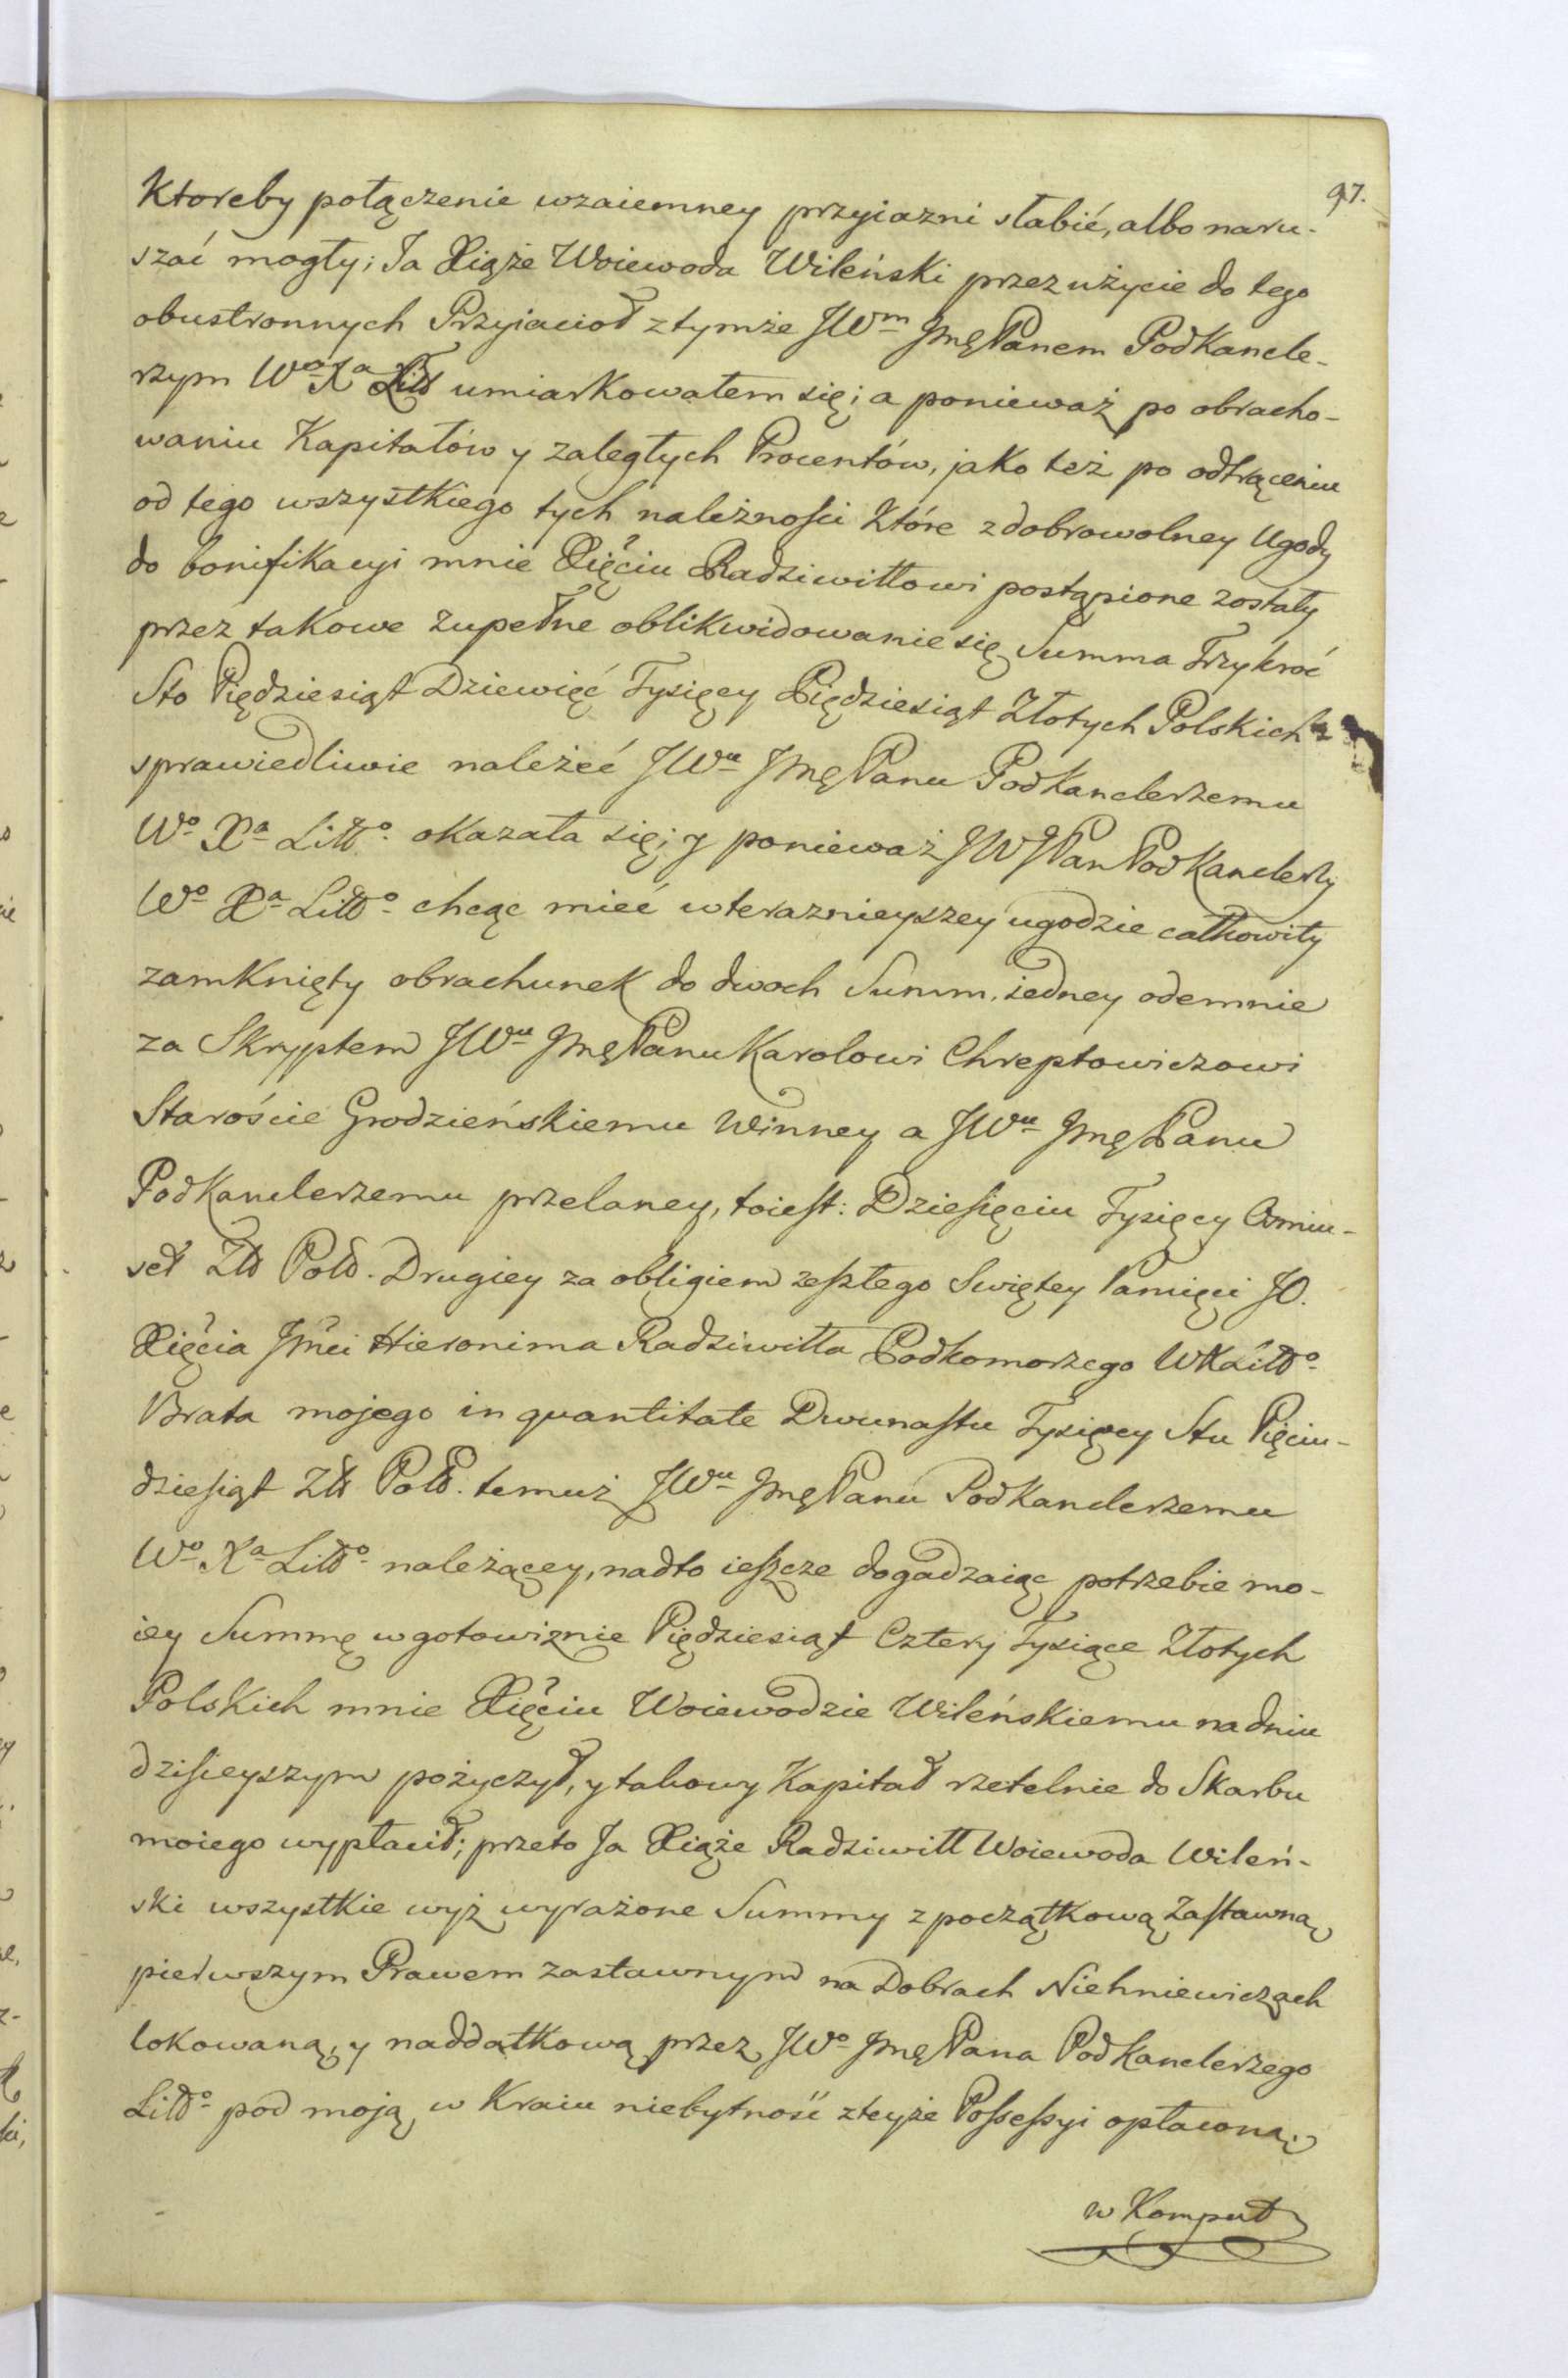 97.
Ktoreby połączenie wzaiemney przyiazni słabić, albo naru-
szać mogły; Ja Xiąże Woiewoda Wileński przez użycie do tego
obustronnych Przyiacioł z tymże JWm JmęPanem Podkancle-
rzym Wo Xa Litt umiarkowałem się; a ponieważ po obracho-
waniu Kapitałów y zaległych Procentów, jako też po odtrąceniu
od tego wszystkiego tych należności które z dobrowolney Ugody
do bonifikacyi mnie Xięciu Radziwiłłowi postąpione zostały
przez takowe zupełne oblikwidowanie się Summa Trzykroć
Sto Piędziesiąt Dziewięć Tysięcy Piędziesiąt Złotych Polskich
sprawiedliwie należeć JWu JmęPanu Podkanclerzemu
Wo Xa Litto okazała się; y ponieważ JWJPan Podkanclerzy
Wo Xa Litto chcąc mieć w teraznieyszey ugodzie całkowity
zamknięty obrachunek do dwoch Summ, iedney odemnie
za Skryptem JWu JmęPanu Karolowi Chreptowiczowi
Staroście Grodzieńskiemu winney a JWu JmęPanu
Podkanclerzemu przelaney, toiest: Dziesięciu Tysięcy Osmiu-
set Złł Poll. Drugiey za obligiem zeszłego Swiętey Pamięci JO.
Xięcia Jmci Hieronima Radziwiłła Podkomorzego WXLitto
Brata mojego in quantitate Dwunastu Tysięcy Stu Pięciu-
dziesiąt Złł Poll. temuż JWu JmęPanu Podkanclerzemu
Wo Xa Litto należącey, nadto ieszcze dogadzaiąc potrzebie mo-
iey Summę w gotowiznie Piędziesiąt Cztery Tysiące Złotych
Polskich mnie Xięciu Woiewodzie Wileńskiemu na dniu
dzisieyszym pożyczył, y takowy Kapitał rzetelnie do Skarbu
moiego wypłacił; przeto Ja Xiąże Radziwiłł Woiewoda Wileń-
ski wszystkie wyż wyrażone Summy z początkową Zastawną
pierwszym Prawem zastawnym na Dobrach Niehniewiczach
lokowaną, y naddatkową przez JWo JmęPana Podkanclerzego
Litto pod moją w Kraiu niebytność z teyże Possessyi opłaconą,
w Komput